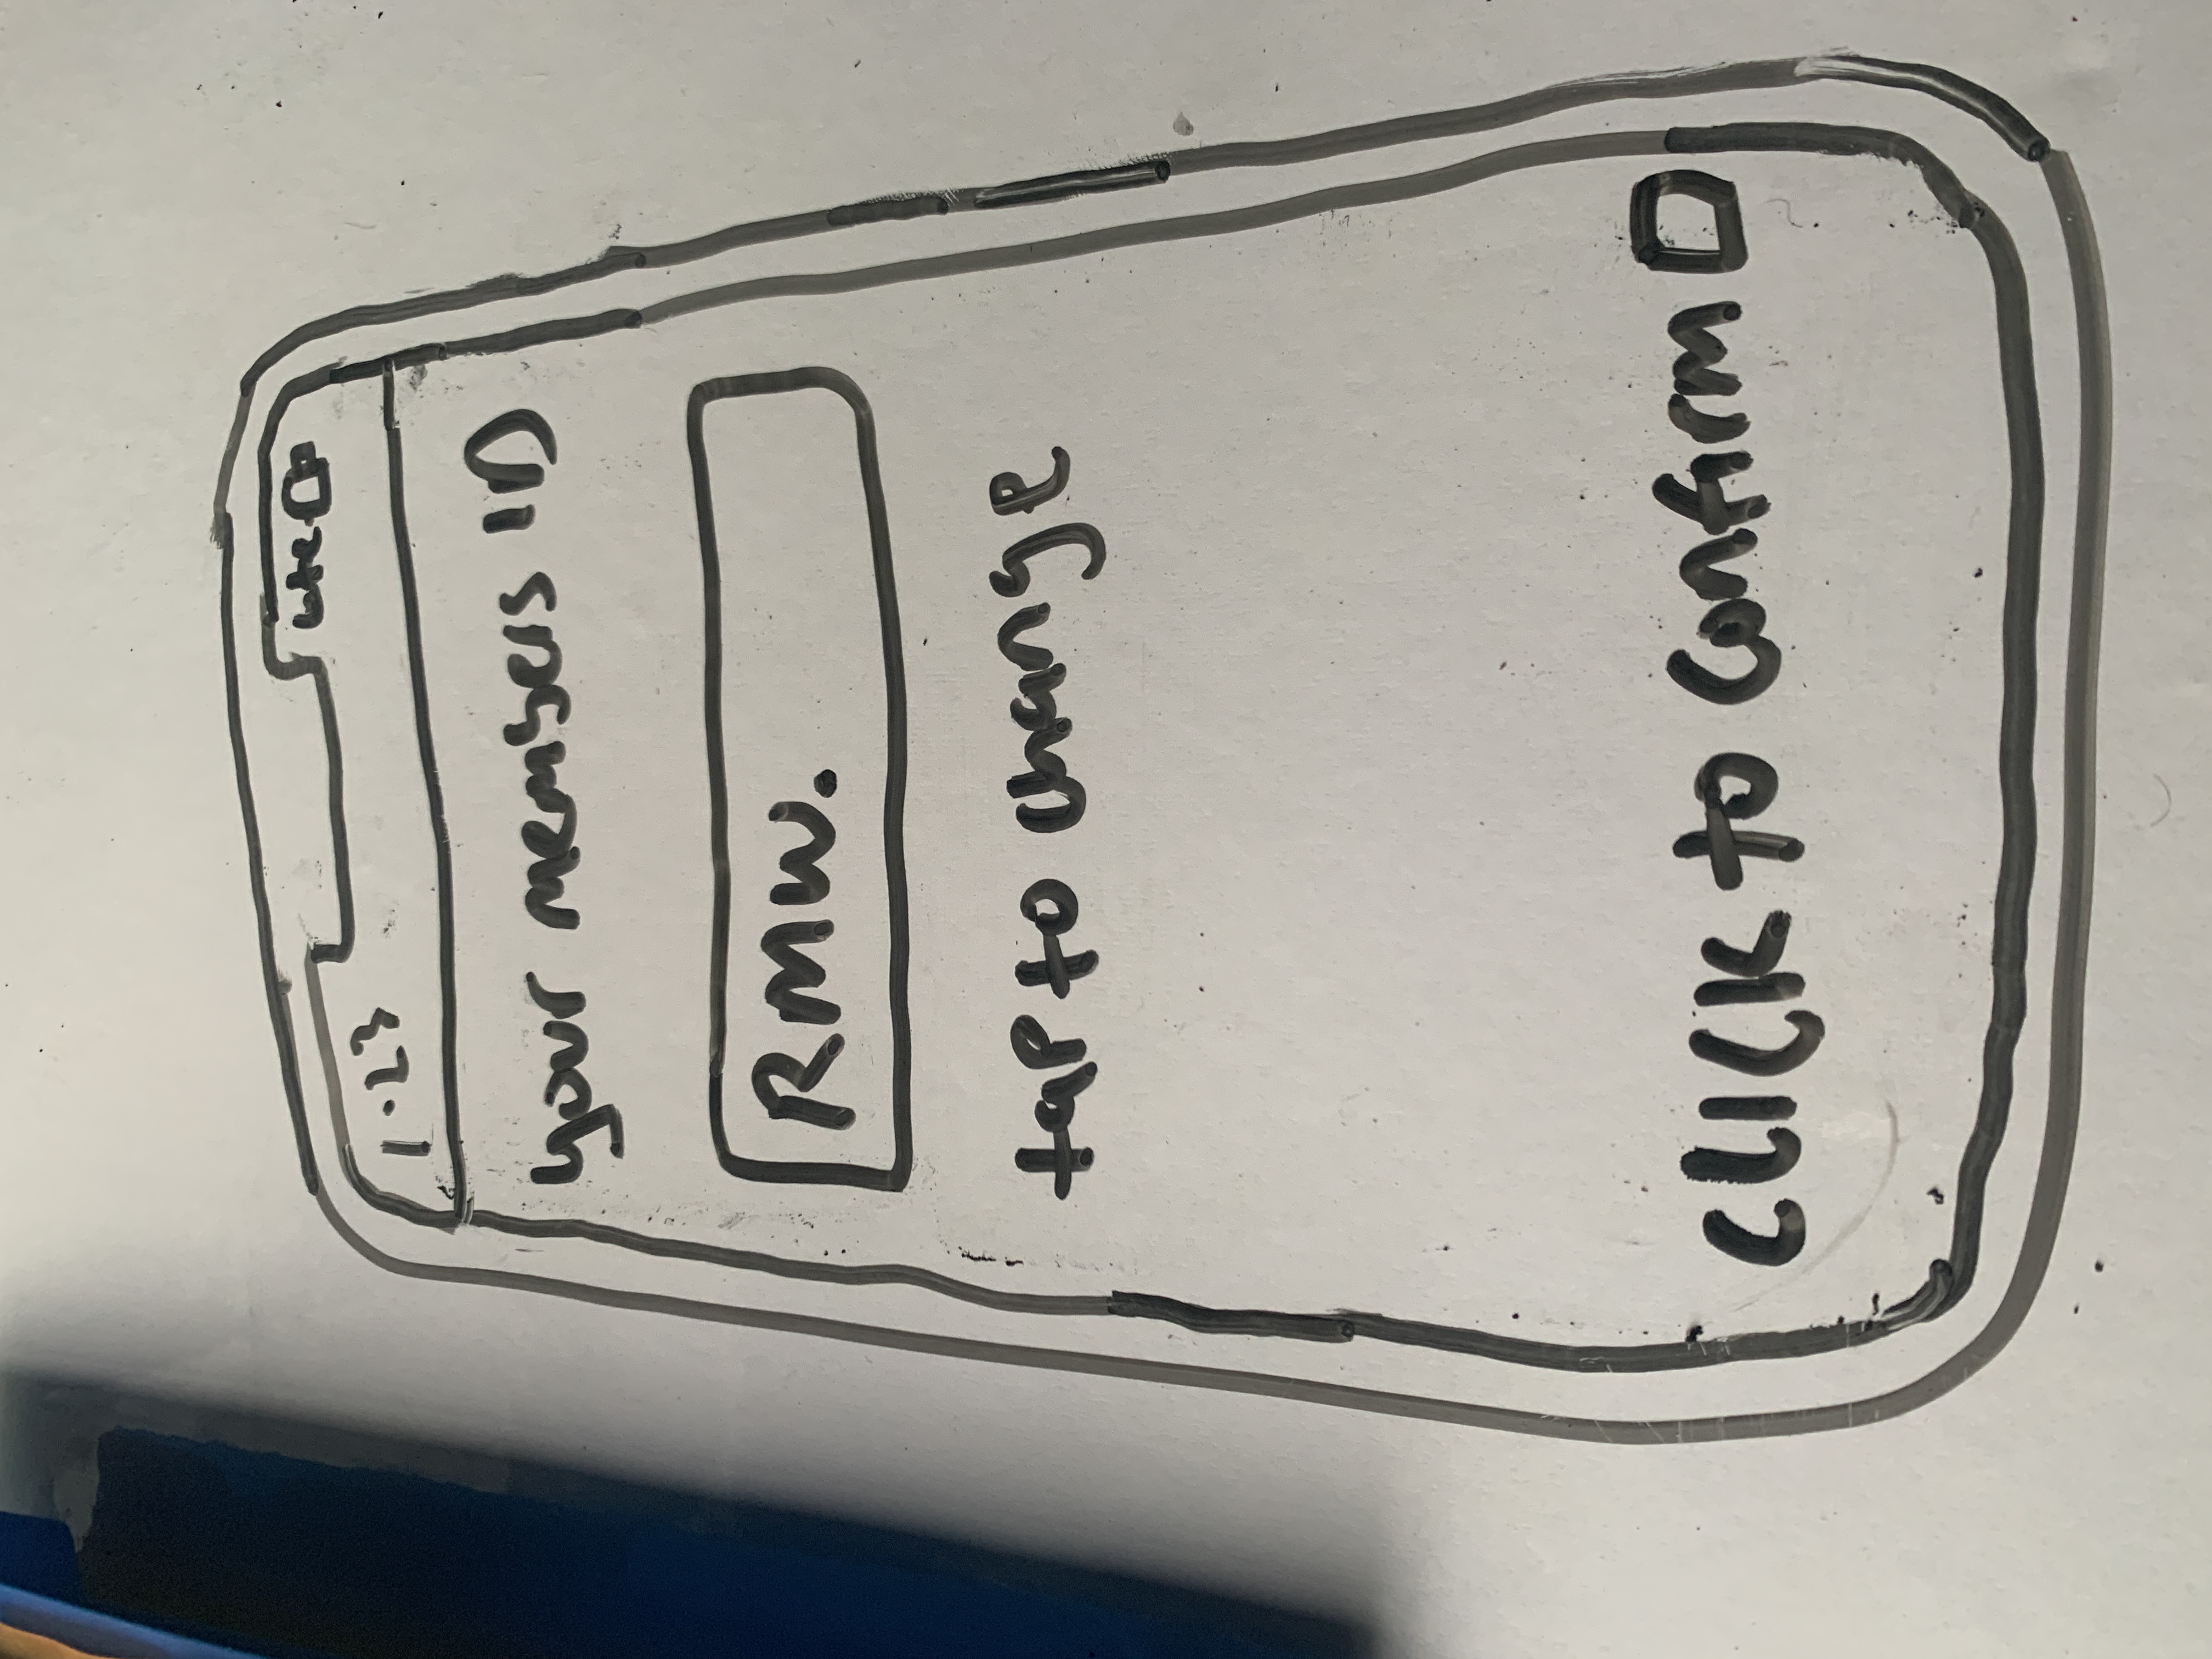 1.23 LTE
your members ID
RMW.
tap to change
CLICK to confirm